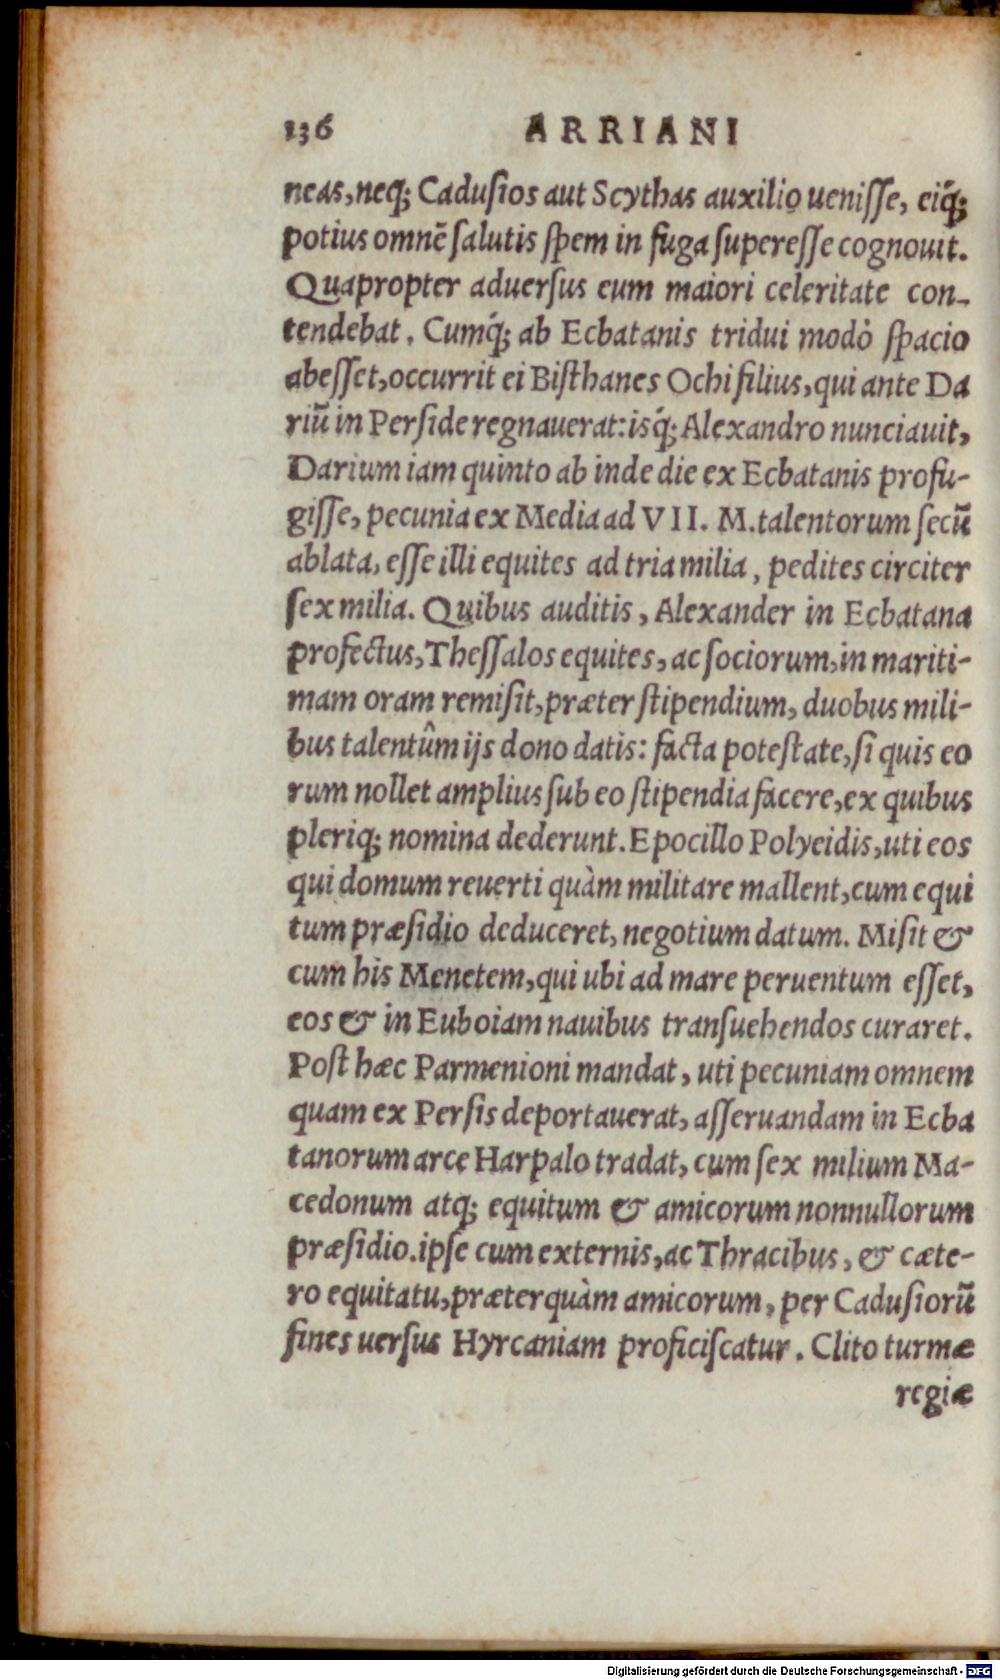 136 ARRIANI
neas, neq; Cadusios aut Scythas auxilio uenisse, eiq́;
potius omnẽ salutis spem in fuga superesse cognouit.
Quapropter aduersus eum maiori celeritate con-
tendebat. Cumq́; ab Ecbatanis tridui modò spacio
abesset, occurrit ei Bisthanes Ochi filius, qui ante Da
riũ in Perside regnauerat: isq́; Alexandro nunciauit,
Darium iam quinto ab inde die ex Ecbatanis profu-
gisse, pecunia ex Media ad VII. M. talentorum secũ
ablata, esse illi equites ad tria milia, pedites circiter
sex milia. Quibus auditis, Alexander in Ecbatana
profectus, Thessalos equites, ac sociorum, in mariti-
mam oram remisit, præter stipendium, duobus mili-
bus talentûm ijs dono datis: facta potestate, si quis eo
rum nollet amplius sub eo stipendia facere, ex quibus
pleriq; nomina dederunt. Epocillo Polyeidis, uti eos
qui domum reuerti quàm militare mallent, cum equi
tum præsidio deduceret, negotium datum. Misit &
cum his Menetem, qui ubi ad mare peruentum esset,
eos & in Euboiam nauibus transuehendos curaret.
Post hæc Parmenioni mandat, uti pecuniam omnem
quam ex Persis deportauerat, asseruandam in Ecba
tanorum arce Harpalo tradat, cum sex milium Ma-
cedonum atq; equitum & amicorum nonnullorum
præsidio. ipse cum externis, ac Thracibus, & cæte-
ro equitatu, præterquàm amicorum, per Cadusiorũ
fines uersus Hyrcaniam proficiscatur. Clito turmæ
regiæ
Digitalisierung gefördert durch die Deutsche Forschungsgemeinschaft - DFG